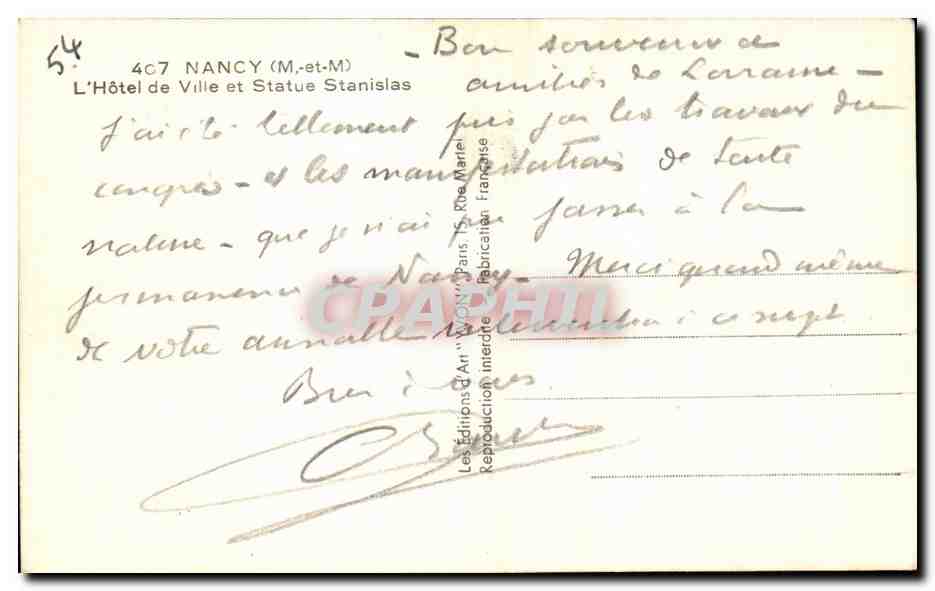 54
407 NANCY (M.-et-M)
L'Hôtel de Ville et Statue Stanislas
- Bon souvenir &
amitiés de Lorraine -
J'ai été tellement pris par les travaux du
congrès - et les manifestations de toute
nature - que je n'ai pu passer à la
permanence de Nancy - Merci quand même
de votre aimable intervention à ce sujet.
Bien à vous
Les Éditions d'Art "YVON", Paris, 15, Rue Martel
Reproduction interdite Fabrication Française
CPAPHIL